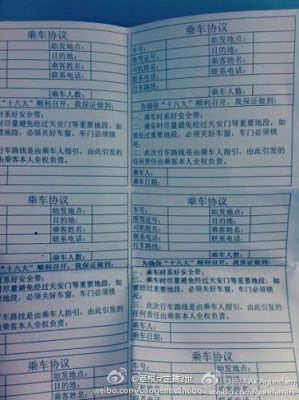 乘车协议
始发地点:
目的地:
乘客姓名:
联系电话:
乘车人数:
"十八大"顺利召开,我保证做到:
时系好安全带;
时尽量避免经过天安门等重要地段,如
要经过,必须关好车窗,车门必须锁
死。
行车路线是由乘车人指引,由此引发的
由乘客本人全权负责。
乘车协议
车号: 始发地点:
准驾证号: 目的地:
司机姓名: 乘客姓名:
联系电话: 联系电话:
行车路线: 乘车人数:
为确保"十八大"顺利召开,我保证做到:
一、乘车时系好安全带;
二、乘车时尽量避免经过天安门等重要地段,如
需要经过,必须关好车窗,车门必须锁
死。
三、此次行车路线是由乘车人指引,由此引发的
任何责任由乘客本人全权负责。
乘车人:
乘车日期:
乘车协议
始发地点:
目的地:
乘客姓名:
联系电话:
乘车人数:
"十八大"顺利召开,我保证做到:
时系好安全带;
时尽量避免经过天安门等重要地段,如
要经过,必须关好车窗,车门必须锁
死。
行车路线是由乘车人指引,由此引发的
由乘客本人全权负责。
乘车协议
车号: 始发地点:
准驾证号: 目的地:
司机姓名: 乘客姓名:
联系电话: 联系电话:
行车路线: 乘车人数:
为确保"十八大"顺利召开,我保证做到:
一、乘车时系好安全带;
二、乘车时尽量避免经过天安门等重要地段,如
需要经过,必须关好车窗,车门必须锁
死。
三、此次行车路线是由乘车人指引,由此引发的
任何责任由乘客本人全权负责。
乘车人:
乘车日期:
乘车协议
始发地点:
目的地:
乘客姓名:
乘车协议
车号: 始发地点: